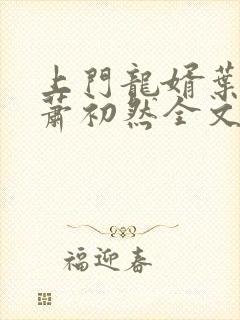 上門龍婿葉
蕭初然全文
福迎春